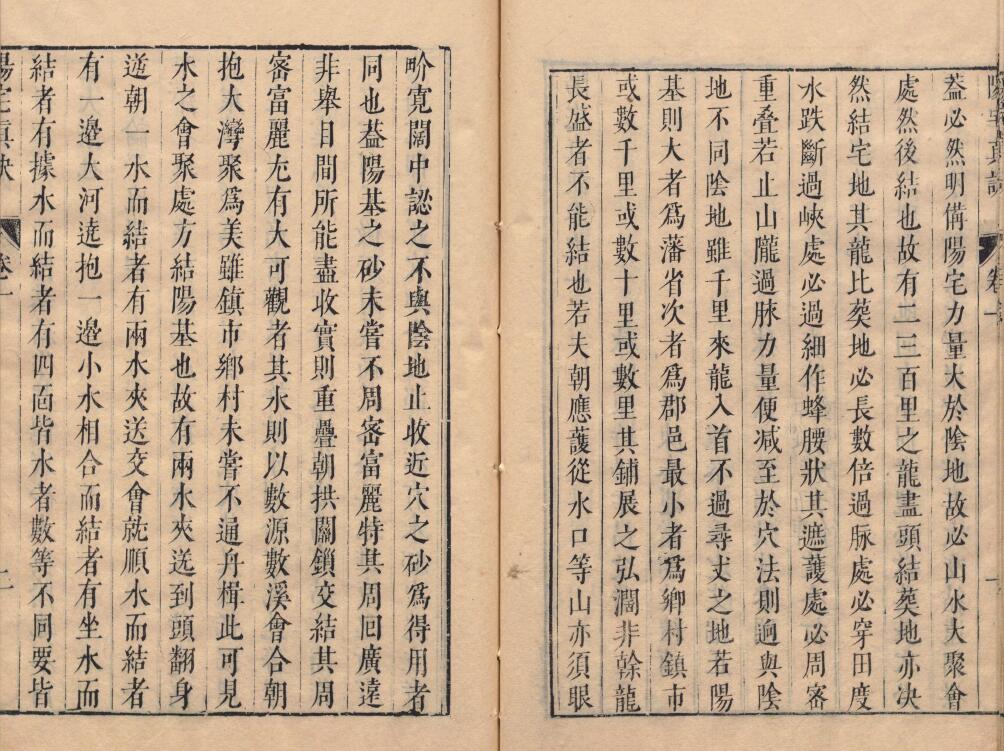 陽宅真訣 卷一 一
葢必然明備陽宅力量大於陰地故必山水大聚會
處然後結也故有二三百里之龍盡頭結葬地亦决
然結宅地其龍比葬地必長數倍過脉處必穿田度
水跌斷過峽處必過細作蜂腰狀其遮䕶處必周宻
重叠若止山隴過脉力量便减至於穴法則逈與陰
地不同陰地雖千里來龍入首不過尋丈之地若陽
基則大者爲藩省次者爲郡邑最小者爲鄉村鎮市
或數千里或數十里或數里其鋪展之弘濶非幹龍
長盛者不能結也若夫朝應䕶從水口等山亦須眼
界寛闊中認之不與陰地止收近穴之砂爲得用者
同也葢陽基之砂未嘗不周宻富麗特其周回廣遠
非舉目間所能盡收實則重疊朝拱關鎖交結其周
宻富麗尤有大可觀者其水則以數源數溪會合朝
抱大灣聚爲美雖鎮市鄉村未嘗不通舟楫此可見
水之會聚處方結陽基也故有兩水夾送到頭翻身
逆朝一水而結者有兩水夾送交會就順水而結者
有一邊大河遶抱一邊小水相合而結者有坐水而
結者有據水而結者有四面皆水者數等不同要皆
陽宅真訣 卷一